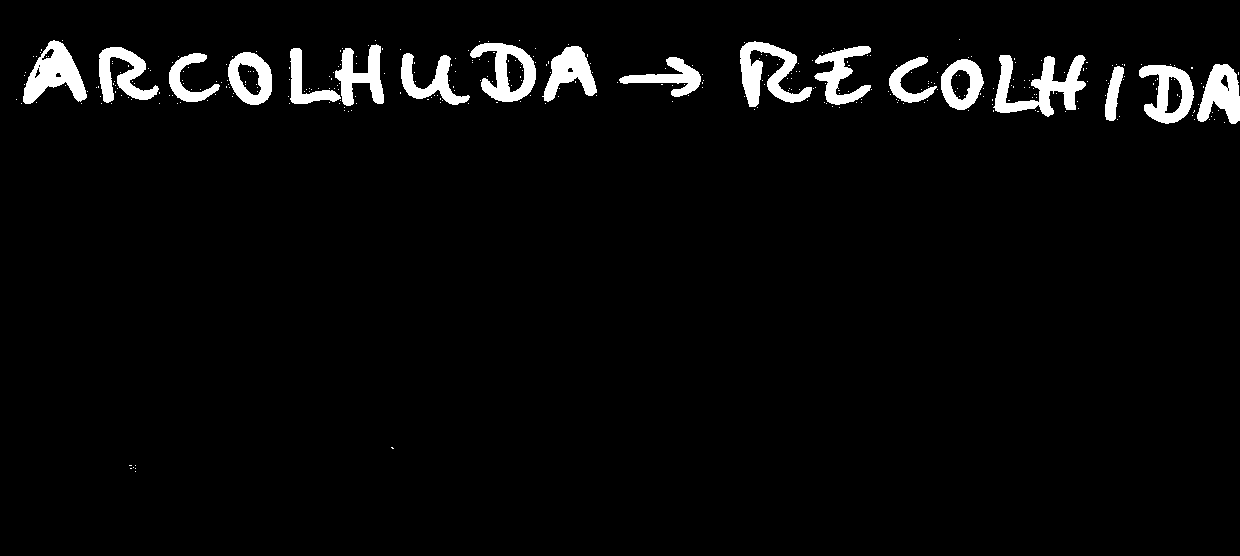 ARCOLHUDA → RECOLHIDA